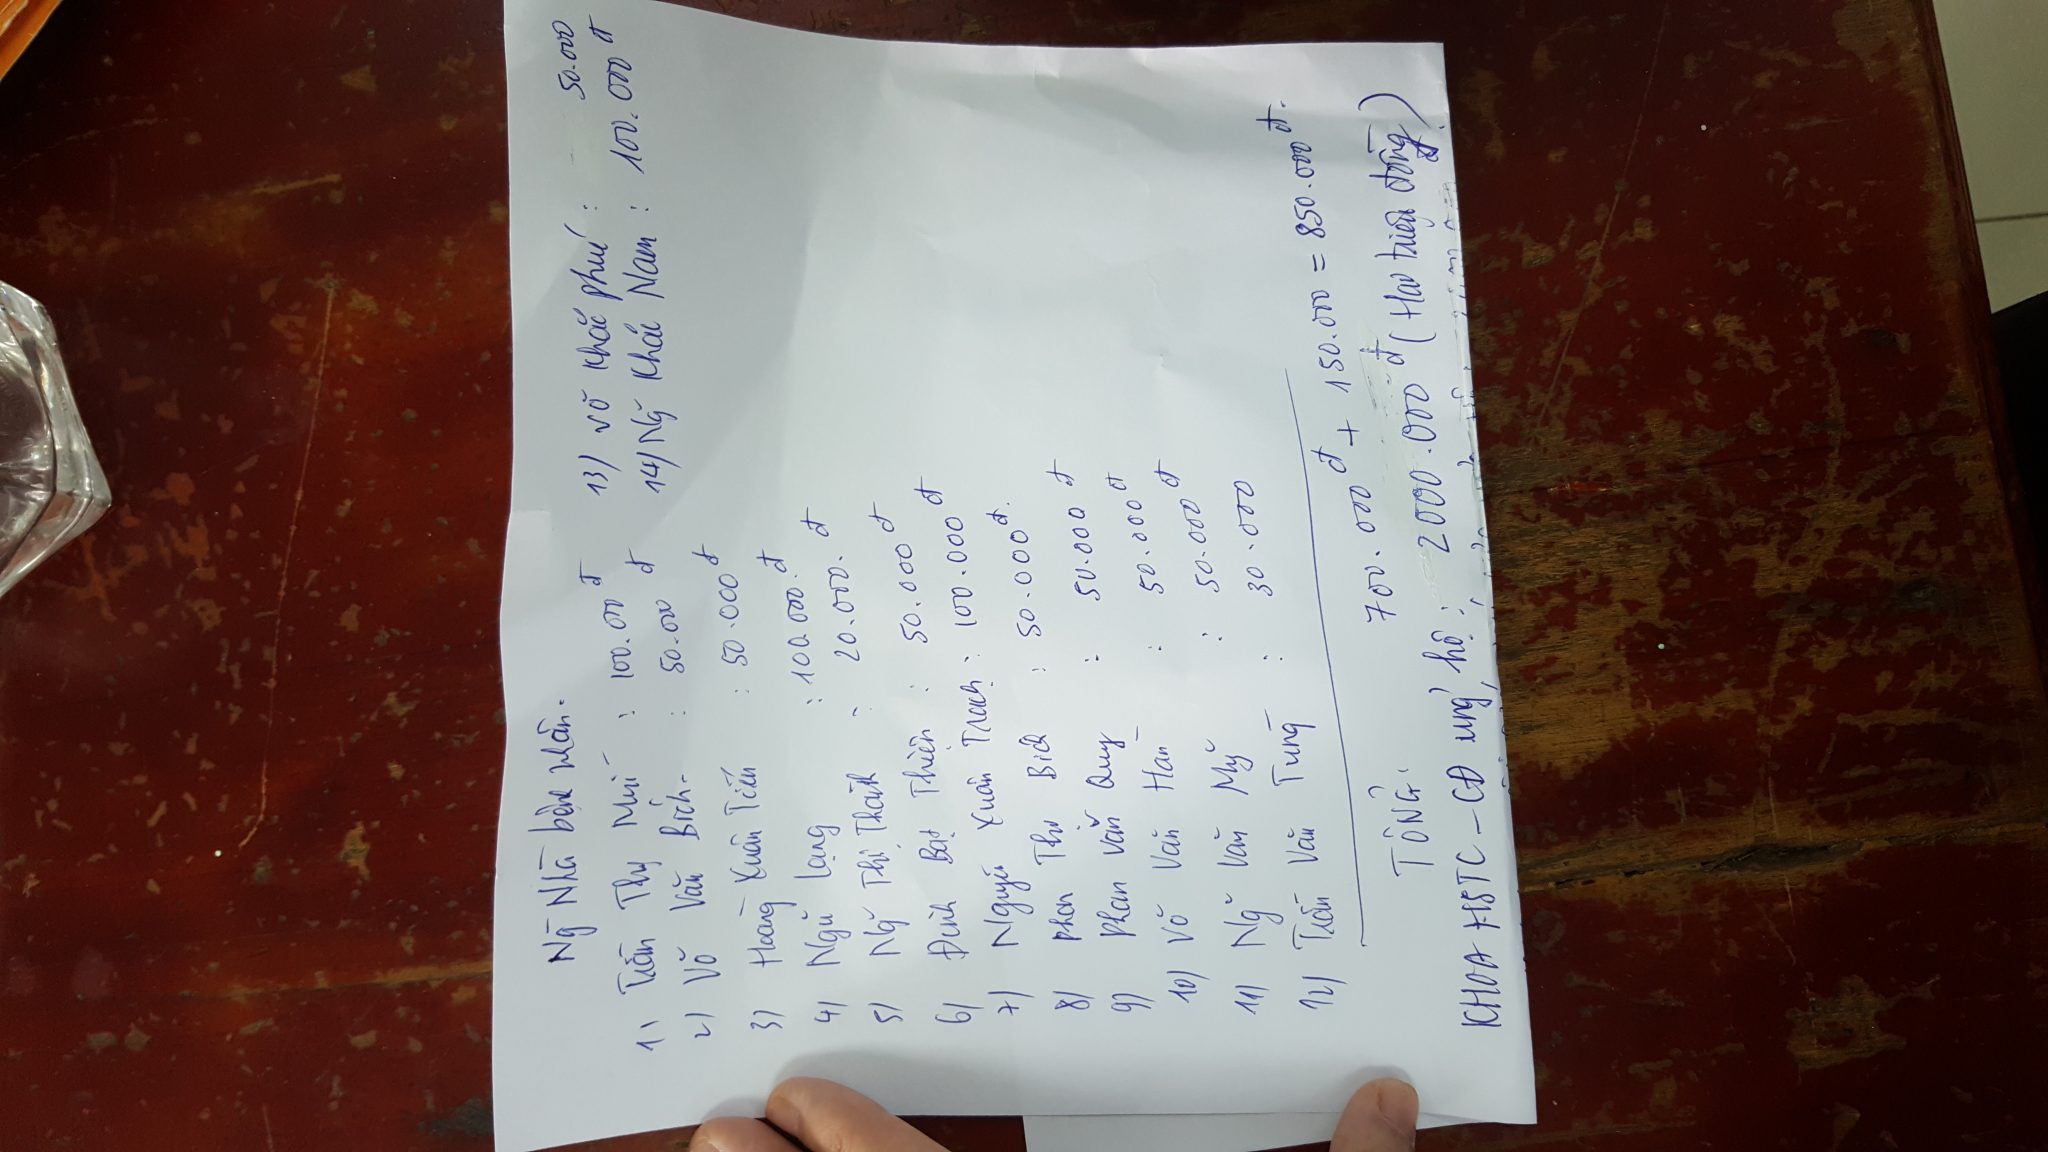 Ng̃ Nhà bệnh nhân.
1) Trần Thị Mùi : 100.000đ
2) Võ Văn Bích. : 50.000đ
3) Hoàng Xuân Tiến : 50.000đ
4) Ngũ Lạng : 100.000.đ
5) Ng̃ Thị Thành : 20.000.đ
6) Đinh Bạt Thiên : 50.000đ
7) Nguyễn Xuân Trạch : 100.000đ
8) Phan Thị Bích : 50.000đ.
9) Phan Văn Quy : 50.000đ
10) Võ Văn Hán : 50.000đ
11) Ng̃ Văn Mỹ : 50.000đ
12) Trần Văn Tùng : 30.000
13) Võ Khắc Phú : 50.000
14) Ng̃ Khắc Nam : 100.000đ
TỔNG: 700.000đ + 150.000 = 850.000đ.
KHOA HSTC - CĐ ủng hộ : 2000.000đ (Hai triệu đồng)